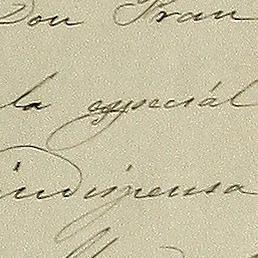 Don Fran
la especiál
indispensa